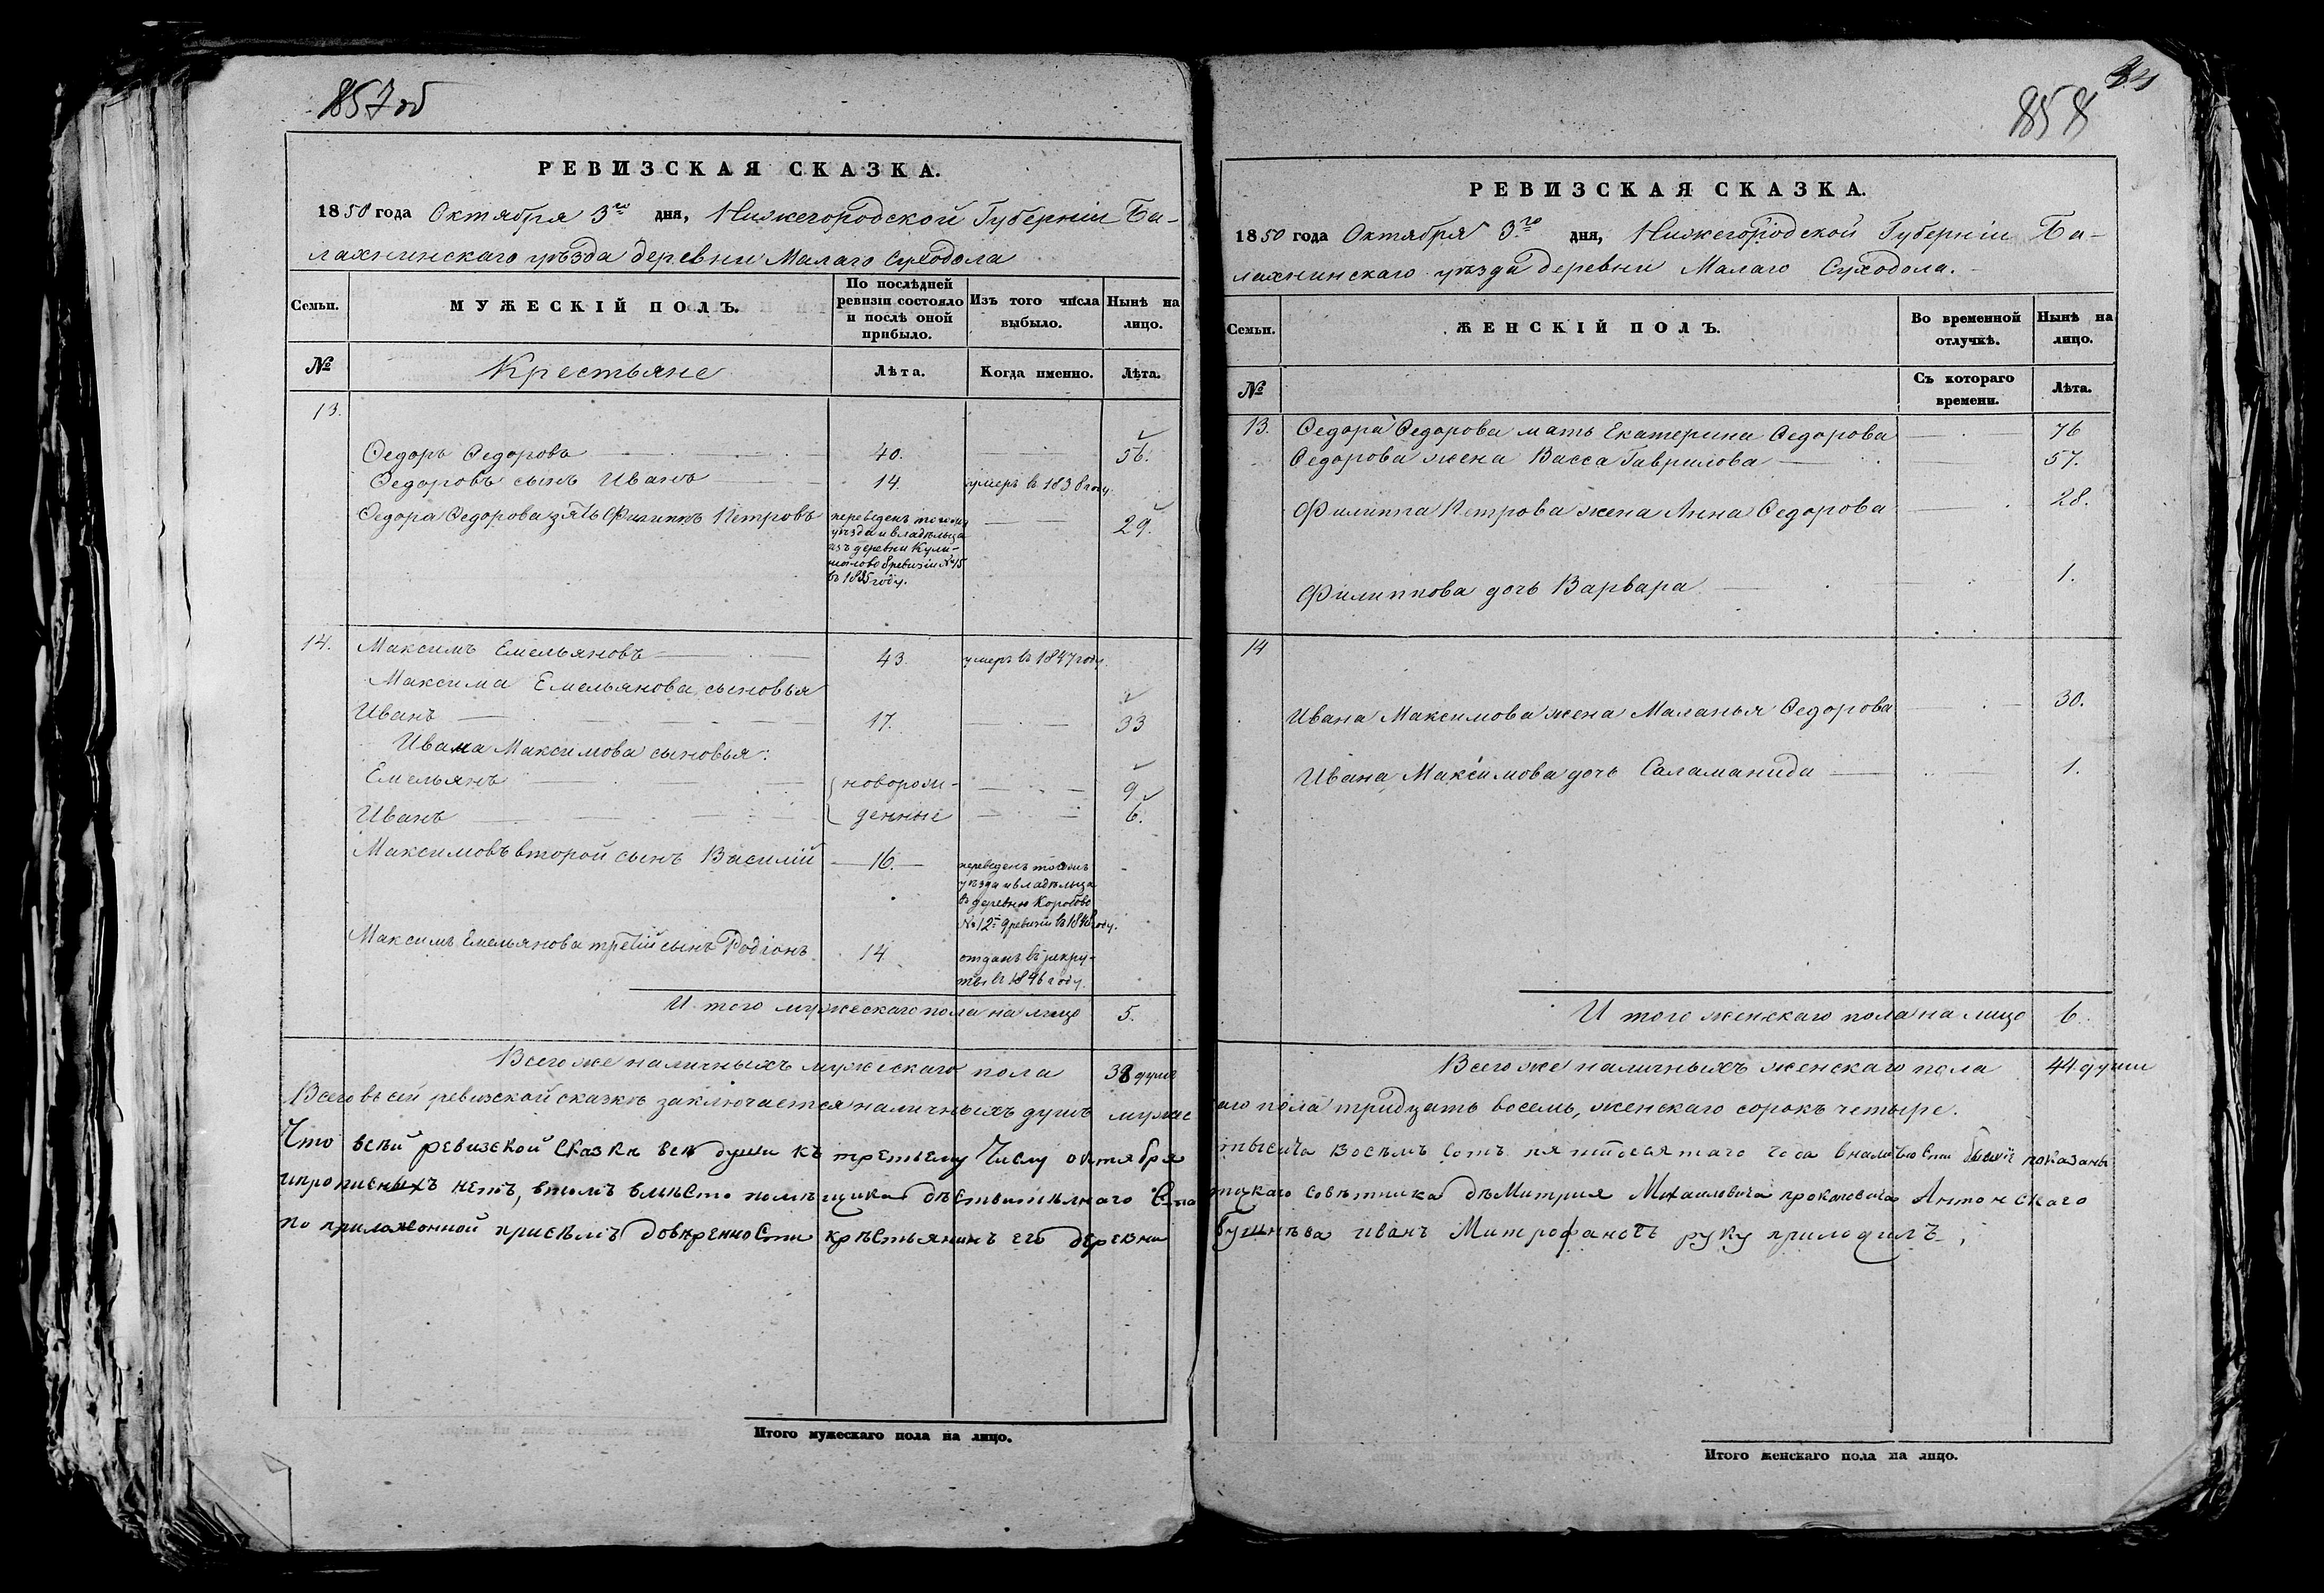 857 об
РЕВИЗСКАЯ СКАЗКА.
1850 года Октября 3го дня, Нижегородской Губерніи Ба-
лахнинскаго уѣзда деревни Малаго Суходола
Семьи.
МУЖЕСКІЙ ПОЛЪ.
По послѣдней
ревизіи состояло
и послѣ оной
прибыло.
Изъ того числа
выбыло.
Нынѣ на
лицо.
№
Крестьяне
Лѣта.
Когда именно.
Лѣта.
13.
Ѳедоръ Ѳедоровъ 40. 56.
Ѳедоровъ сынъ Иванъ 14. умеръ в 1838 году.
Ѳедора Ѳедорова зять Филиппъ Петровъ
переведенъ того же
уѣзда и владѣльца
изъ деревни
8 ревизіи №15
въ 1835 году.
29.
14. Максимъ Емельяновъ 43. умеръ въ 1847 году.
Максима Емельянова сыновья
Иванъ 17. 33
Ивана Максимова сыновья:
Емельянъ новорож- 9
Иванъ денные 6.
Максимовъ второй сынъ Василій 16.
переведенъ того жъ
уѣзда и владѣльца
въ деревню Коробово
№12й 9 ревизіи в 1848 году.
Максима Емельянова третій сынъ Родіонъ 14
отданъ въ рекру-
ты въ 1846 году.
И того мужескаго пола на лицо 5.
Всего же наличныхъ мужескаго пола 38 душъ
Всего въ сей ревизской сказкѣ заключается наличныхъ душъ мужес
Что всѣй ревизской сказкѣ всѣ души къ третьему числу октября
ипрописныхъ нетъ, втомъ вмѣсто помѣщика дѣствительнаго Ста
по приложонной присѣмъ довѣренности крѣстьянинъ его дѣревни
Итого мужескаго пола на лицо.
858
РЕВИЗСКАЯ СКАЗКА.
1850 года Октября 3го дня, Нижегородской Губерніи Ба-
лахнинскаго уѣзда деревни Малаго Суходола.
Семьи.
ЖЕНСКІЙ ПОЛЪ.
Во временной
отлучкѣ.
Нынѣ на
лицо.
№
Съ котораго
времени.
Лѣта.
13. Ѳедора Ѳедорова мать Екатерина Ѳедорова 76
Ѳедорова жена Васса Гаврилова 57.
Филиппа Петрова жена Анна Ѳедорова 28.
Филиппова дочь Варвара 1.
14
Ивана Максимова жена Маланья Ѳедорова 30.
Ивана Максимова дочь Саламанида 1.
И того женскаго пола на лицо 6.
Всего же наличныхъ женскаго пола 44 души
каго пола тридцать восемь, женскаго сорокъ четыре.
тысяча восѣмъ сотъ пятидесятаго года вналичности показаны
тскаго совѣтника дѣмитрия Михаиловича прокоповича Антонскаго
бушнѣва иванъ Митрофановъ руку приложилъ
Итого женскаго пола на лицо.